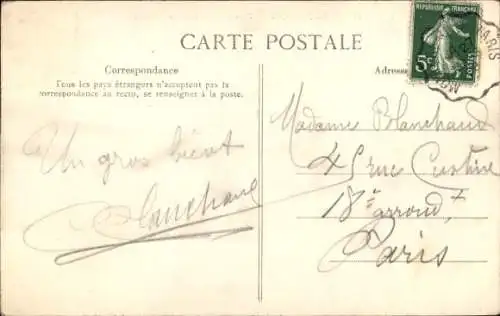 CARTE POSTALE
Correspondance
Tous les pays étrangers n'acceptent pas la
correspondance au recto, se renseigner à la poste.
Un gros
Blanchaud
Adres
REPUBLIQUE FRANÇAISE
5c
PARIS
Madame Blanchaud
45 rue Custine
18e arrondt
Paris